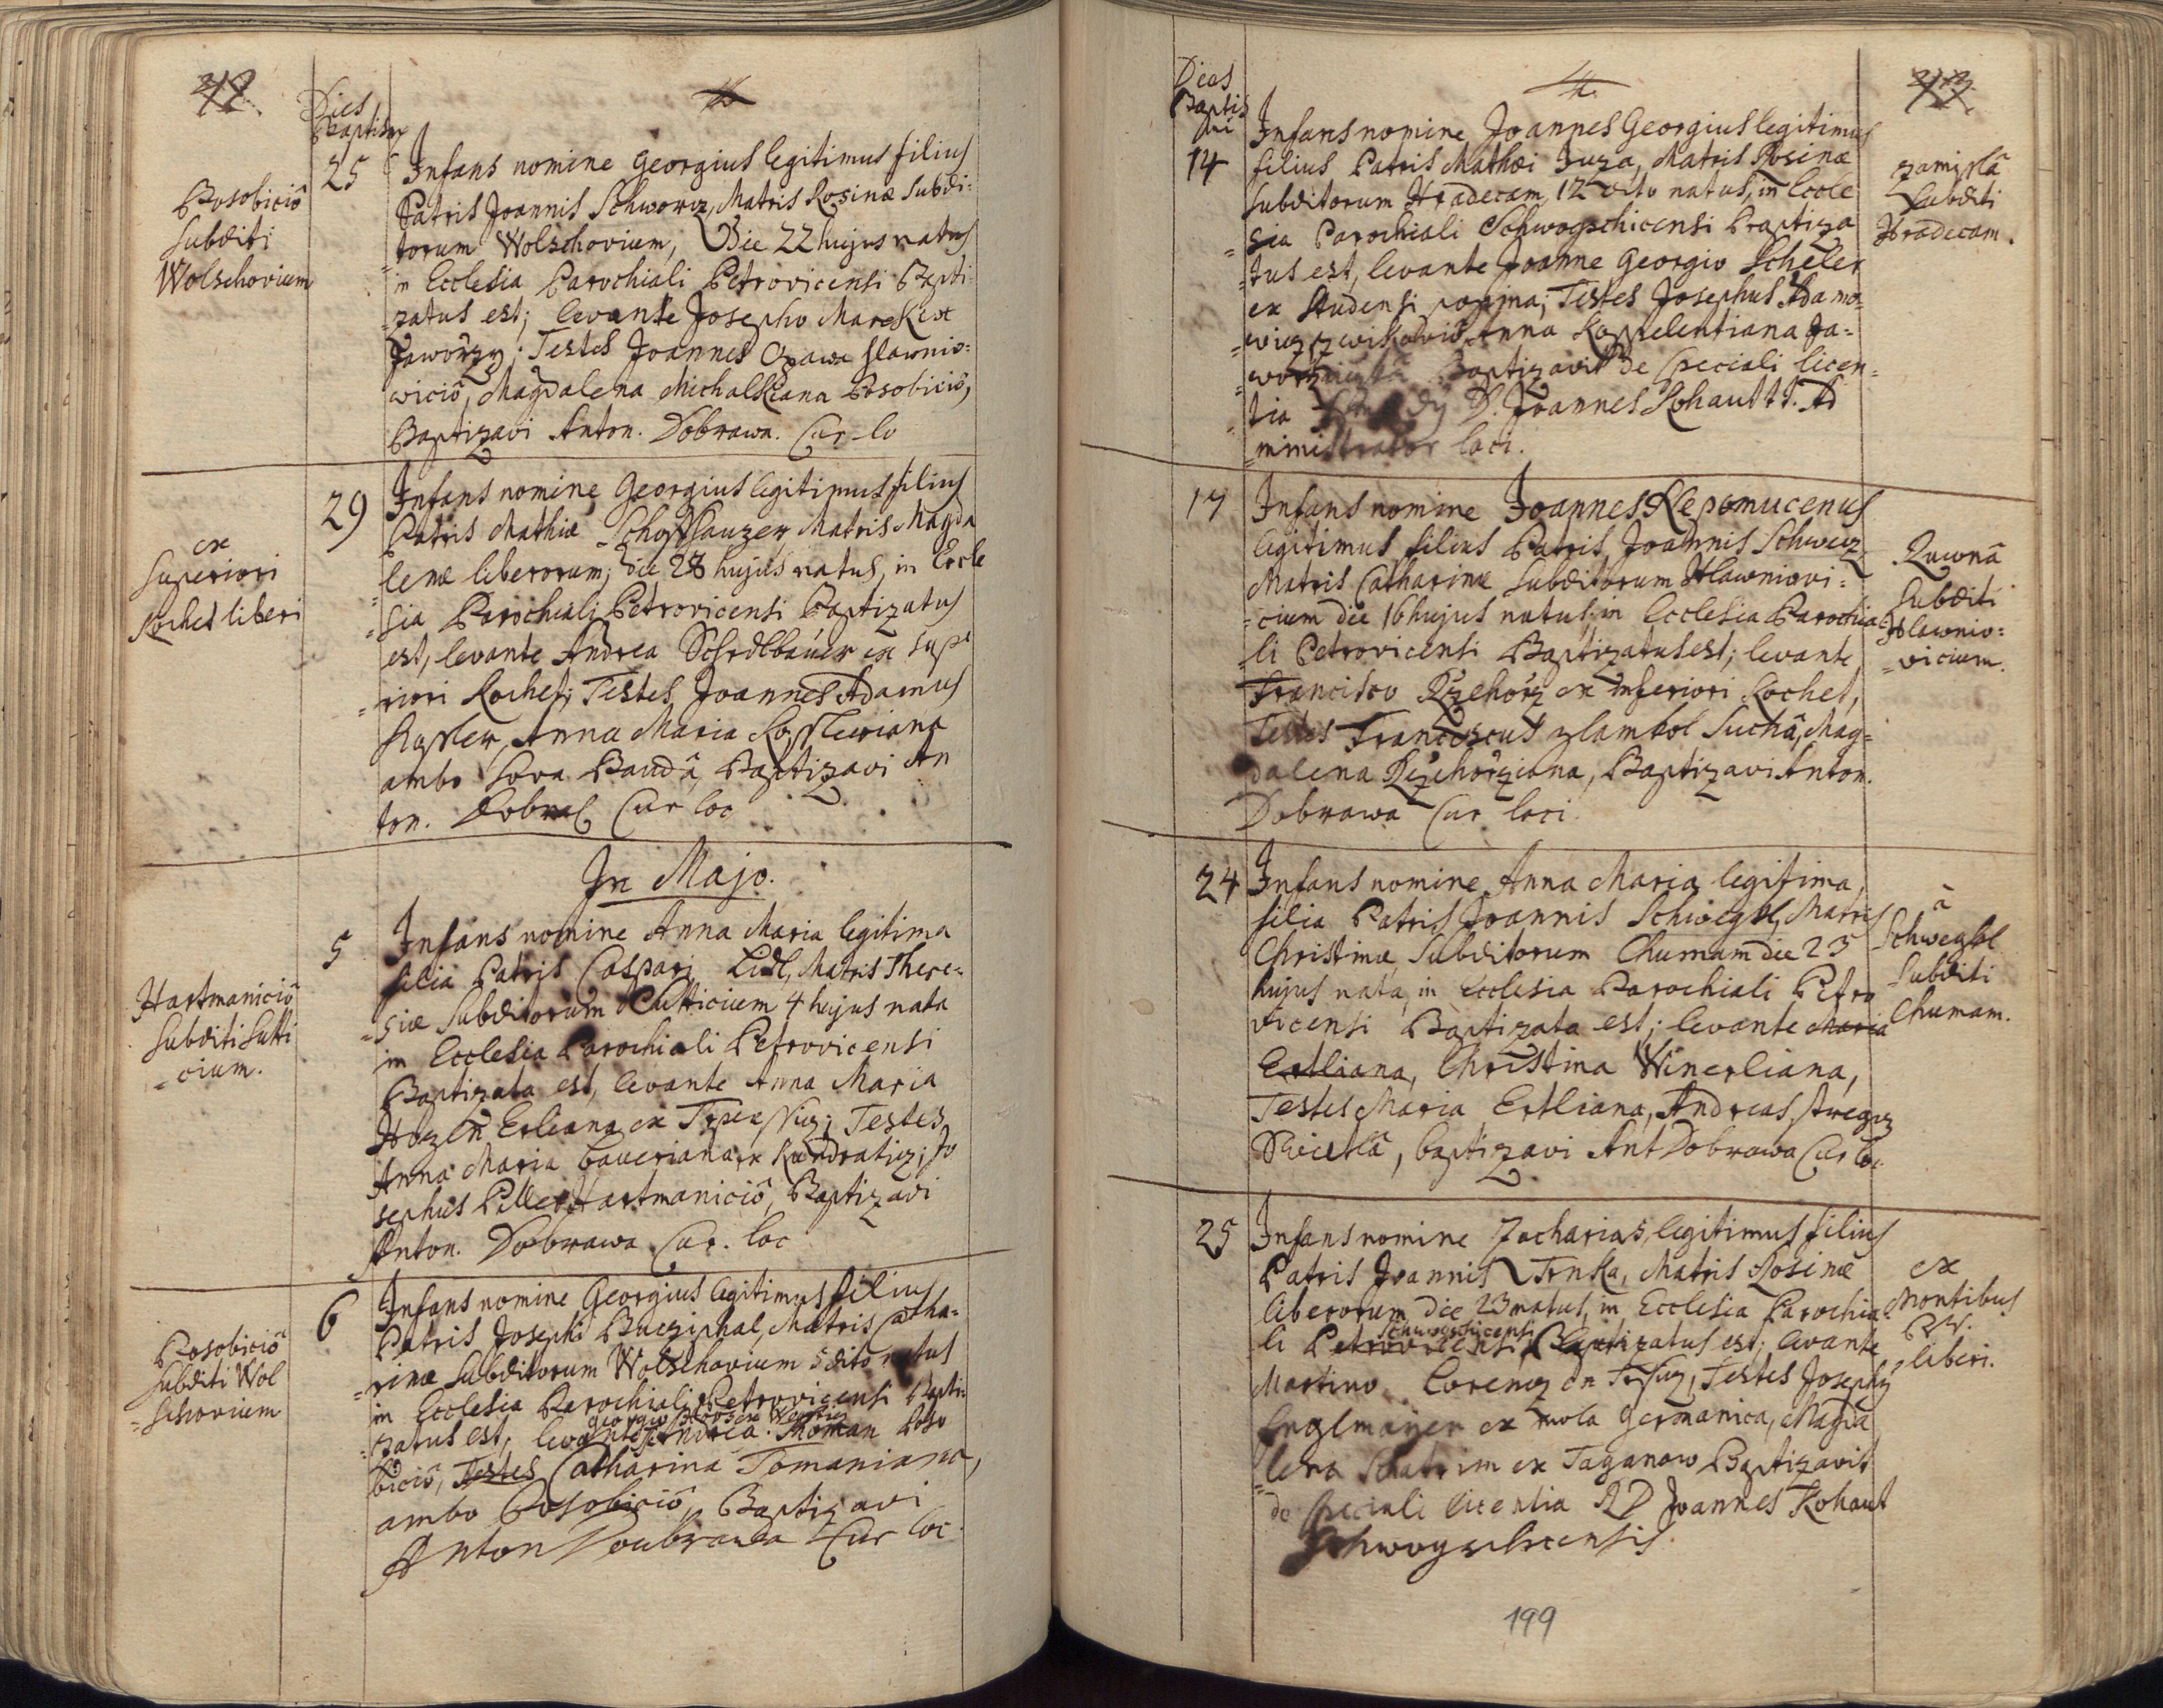 Dies
Baptism
25 Infans nomine Georgius legitimus filius
Patris Joannis Schworz, Matris Rosinæ Subdi=
=torum Wolschovium, Die 22 hujus natus
in Ecclesia Parochiali Petrovicensi Bapti
=zatus est; levante Josepho Marek ex
Jaworzy; Testes Joannes Opawa Hlawnio=
wiciô, Magdalena Michalkiana Posobiciô,
Baptizavi Anton. Dobrawa. Cur lo
Posobiciô
Subditi
Wolschovium
29 Infans nomine Georgius legitimus filius
Patris Mathiæ Matris Magda
lenæ liberorum; die 28 hujus natus, in Eccle
=sia Parochiali Petrovicensi Baptizatus
est, levante Andrea ex supe
=riori Kochet; Testes Joannes Adamus
Anna Maria
ambo Baptizavi An
ton. Cur loc
ex
Superiori
Kochet liberi
In Majo.
5 Infans nomine Anna Maria legitima
filia Patris Caspari Lidl, Matris There=
=siæ Subditorum Sutticium 4 hujus nata
in Ecclesia Parochiali Petrovicensi
Baptizata est, levante Anna Maria
ex Testes
Anna Maria Baueriana ex Kundratiz; Jo
sephus Hartmaniciô, Baptizavi
Anton. Dobrawa Cur. loc
Hartmaniciô
Subditi Sutti
=cium.
6 Infans nomine Georgius legitimus filius
Patris Josephi Matris Catha=
=rinæ Subditorum Wolschovium 5 dito natus
in Ecclesia Parochiali Petrovicensi Bapti=
Georgio ex
=zatus est, levante Andrea Thoman Poso
biciô, Testes Catharina Tomaniana,
ambo Posobiciô, Baptizavi
Anton Doubrawa Cur loc
Posobiciô
Subditi Wol
=schovium
Dies
Baptis
mi
14 Infans nomine Joannes Georgius legitimus
filius Patris Mathæi Juza, Matris Rosinæ
Subditorum Hradecam, 12 dito natus, in Eccle
=sia Parochiali Schwogschicensi Baptiza
=tus est, levante Joanne Georgio Scheler
ex Testes Josephus Adamo=
Anna Ja=
Baptizavit de speciali licen=
tia D. Joannes Kohaut t.t. Ad
=ministrator loci.
Zamislâ
Subditi
Hradecam.
17 Infans nomine Joannes Nepomucenus
legitimus filius Patris Joannis
Matris Catharinæ Subditorum Hlawniovi=
=cium die 16 hujus natus, in Ecclesia Parochia
=li Petrovicensi Baptizatus est; levante
Francisco Rzehorz ex inferiori Kochet,
Testes Franciscus Suchâ, Mag=
dalena Rzehorziana, Baptizavi Anton.
Dobrawa Cur loci.
Rwnâ
Subditi
Hlawnio=
=vicium.
24 Infans nomine Anna Maria legitima
filia Patris Joannis Matris
Christinæ Subditorum Chumam die 23
hujus nata, in Ecclesia Parochiali Petro
vicensi Baptizata est; levante Maria
Ertliana, Christina Winerliana,
Testes Maria Ertliana, Andreas
baptizavi Ant Dobrawa Cur loc
â
Subditi
Chumam.
25 Infans nomine Zacharias, legitimus filius
Patris Joannis Trnka, Matris Rosinæ
liberorum die 23 natus, in Ecclesia Parochia
Schwogschicensi
li Petrovicensi Baptizatus est; levante
Martino Lorenz ex Testes Josephus
Englmayer ex mola Germanica, Magda
=lena ex Baptizavit
de speciali licentia Joannes Kohaut
Schwogschicensis
ex
Montibus
liberi.
199